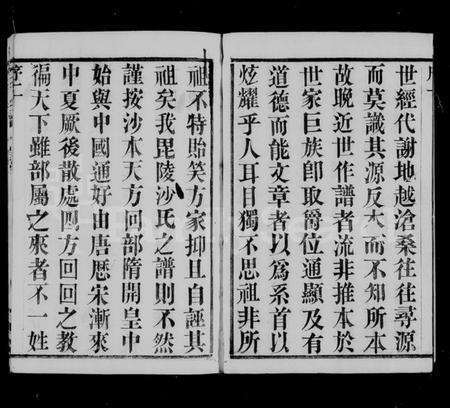 世經代謝地越滄桑往往尋源
而莫識其源反本而不知所本
故晚近世作譜者流非推本於
世家巨族卽取爵位通顯及有
道德而能文章者以爲系首以
炫耀乎人耳目獨不思祖非所
祖不特貽笑方家抑且自誣其
祖矣我毘陵沙氏之譜則不然
謹按沙本天方回部隋開皇中
始與中國通好由唐歷宋漸來
中夏厥後散處四方回回之教
徧天下雖部屬之來者不一姓